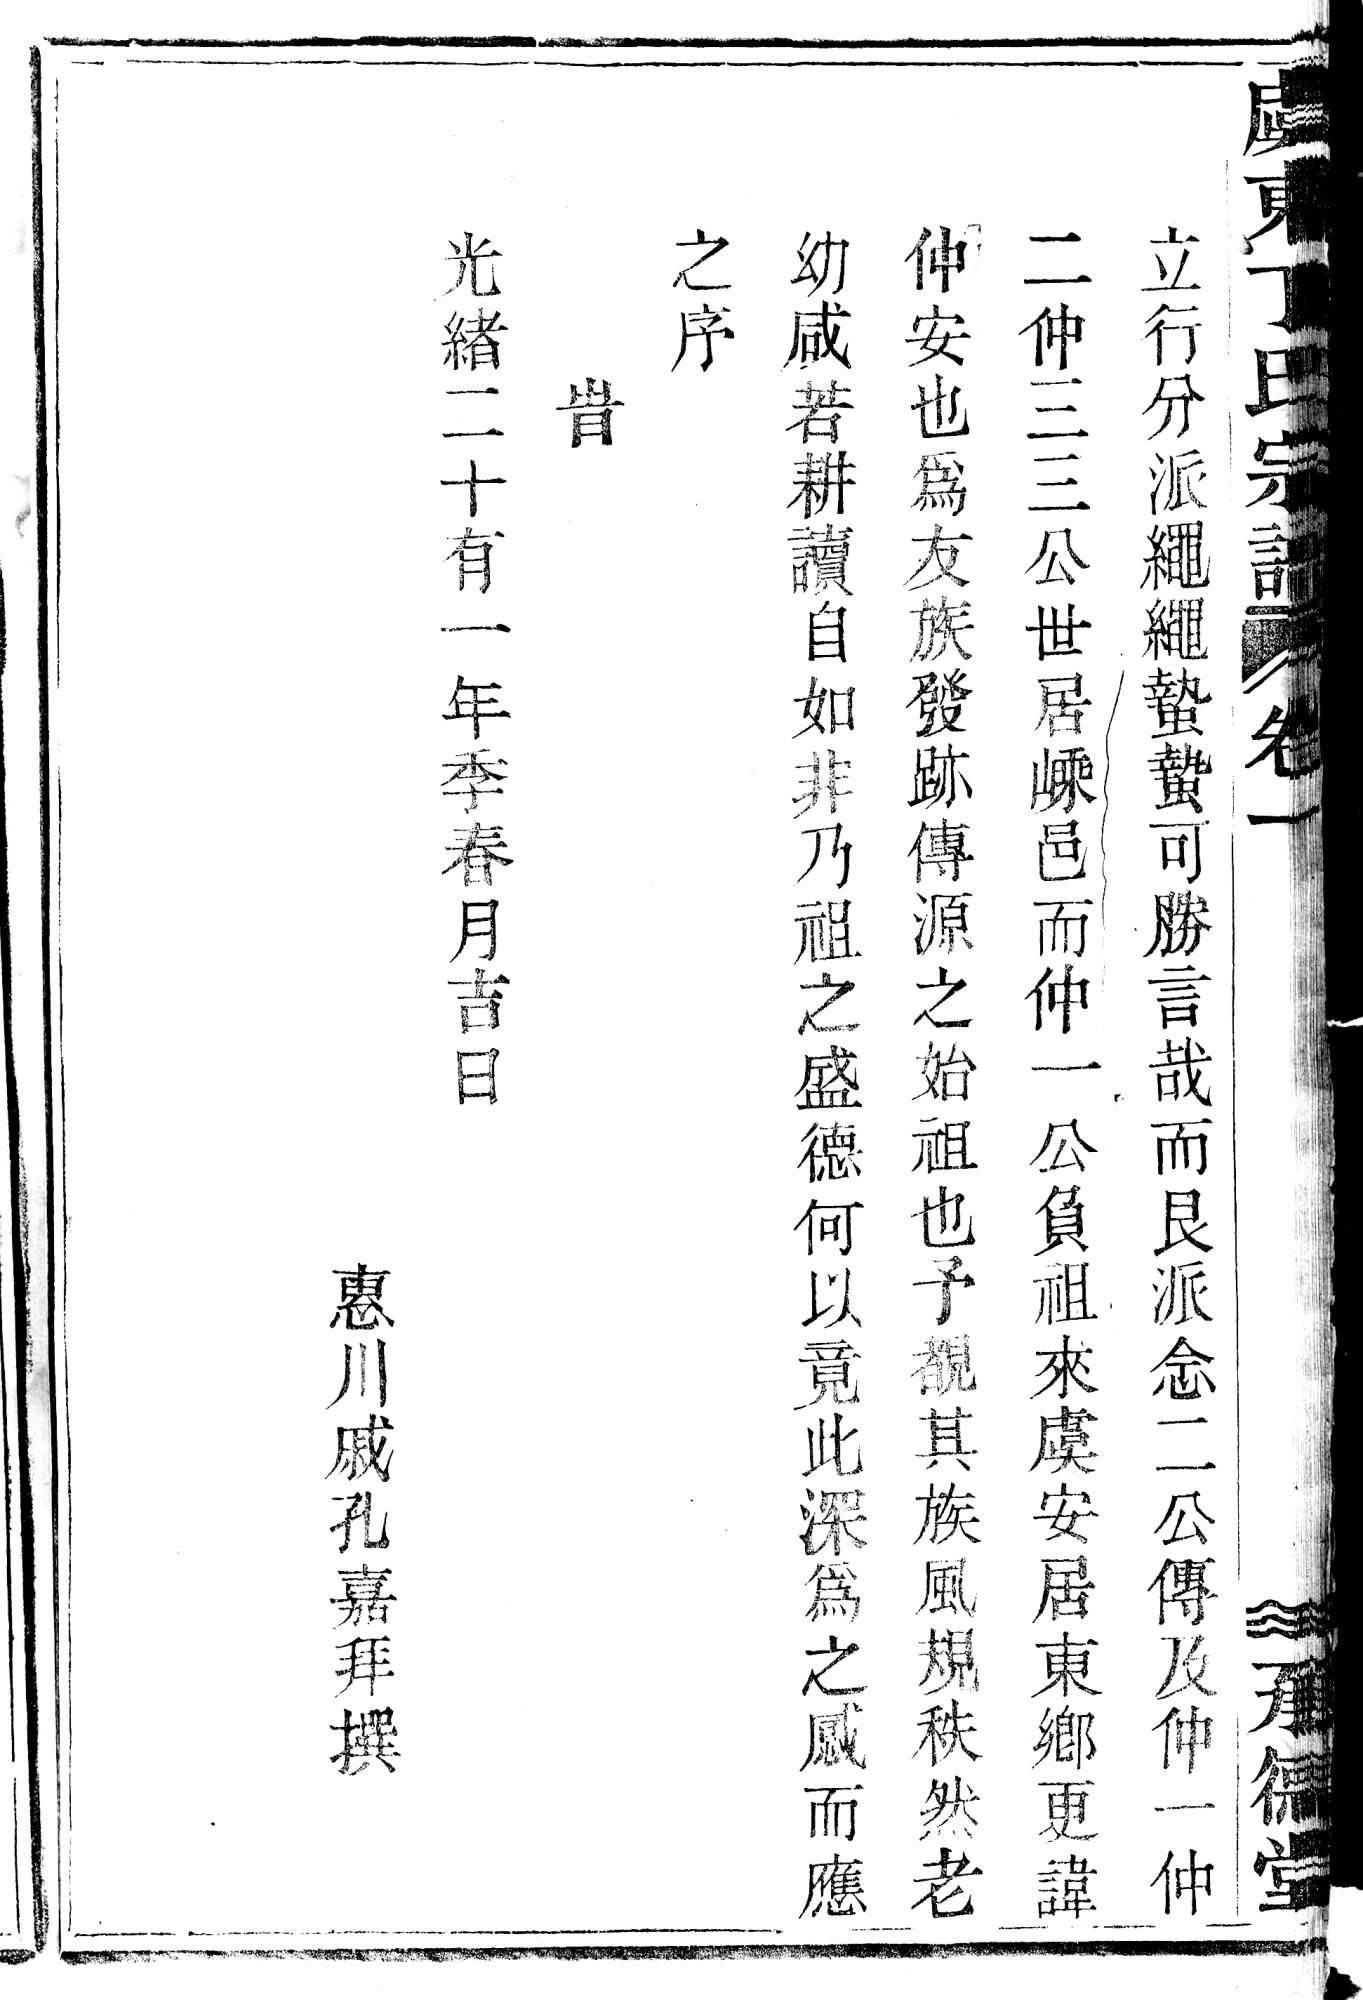 虞東丁氏宗譜 卷一 承德堂
立行分派繩繩蟄蟄可勝言哉而艮派念二公傳及仲一仲
二仲三三公世居嵊邑而仲一公負祖來虞安居東鄉更諱
仲安也為友族發跡傳源之始祖也予覩其族風規秩然老
幼咸若耕讀自如非乃祖之盛德何以竟此深為之感而應
之序
旹
光緒二十有一年季春月吉日
惠川戚孔嘉拜撰